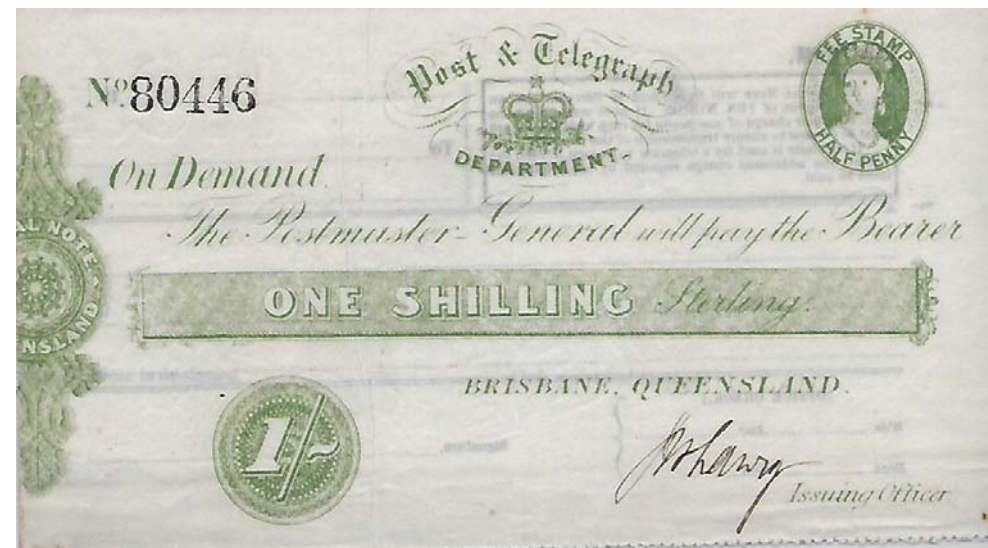 Post & Telegraph
DEPARTMENT.
FEE STAMP
HALF PENNY
Nº 80446
On Demand
The Postmaster-General will pay the Bearer
AL NOTE
NSLAND
ONE SHILLING Sterling.
BRISBANE, QUEENSLAND.
1/-
Issuing Officer